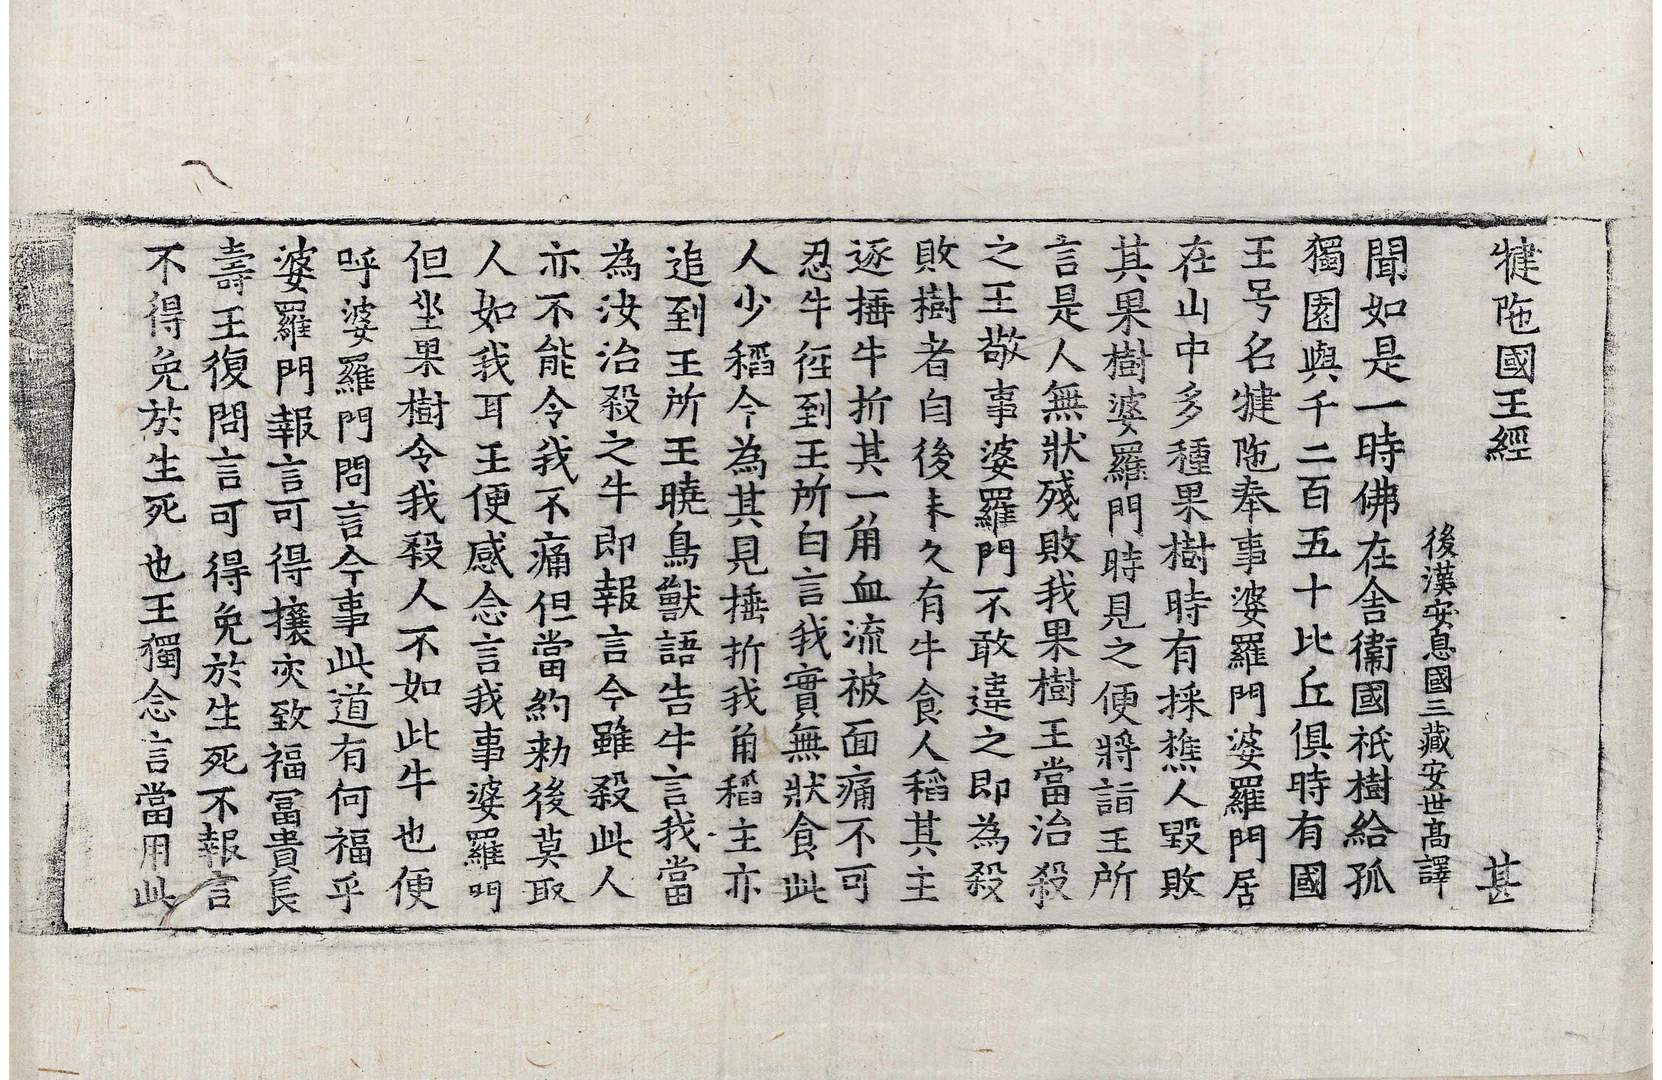 犍陁國王經 甚
後漢安息國三藏安世高譯
聞如是一時佛在舍衛國祇樹給孤
獨園與千二百五十比丘俱時有國
王号名犍陁奉事婆羅門婆羅門居
在山中多種果樹時有採樵人毀敗
其果樹婆羅門時見之便將詣王所
言是人無狀殘敗我果樹王當治殺
之王敬事婆羅門不敢違之即為殺
敗樹者自後未久有牛食人稻其主
逐捶牛折其一角血流被面痛不可
忍牛徑到王所白言我實無狀食此
人少稻今為其見捶折我角稻主亦
追到王所王曉鳥獸語告牛言我當
為汝治殺之牛即報言今雖殺此人
亦不能令我不痛但當約勑後莫取
人如我耳王便感念言我事婆羅門
但坐果樹令我殺人不如此牛也便
呼婆羅門問言今事此道有何福乎
婆羅門報言可得攘灾致福冨貴長
壽王復問言可得免於生死不報言
不得免於生死也王獨念言當用此